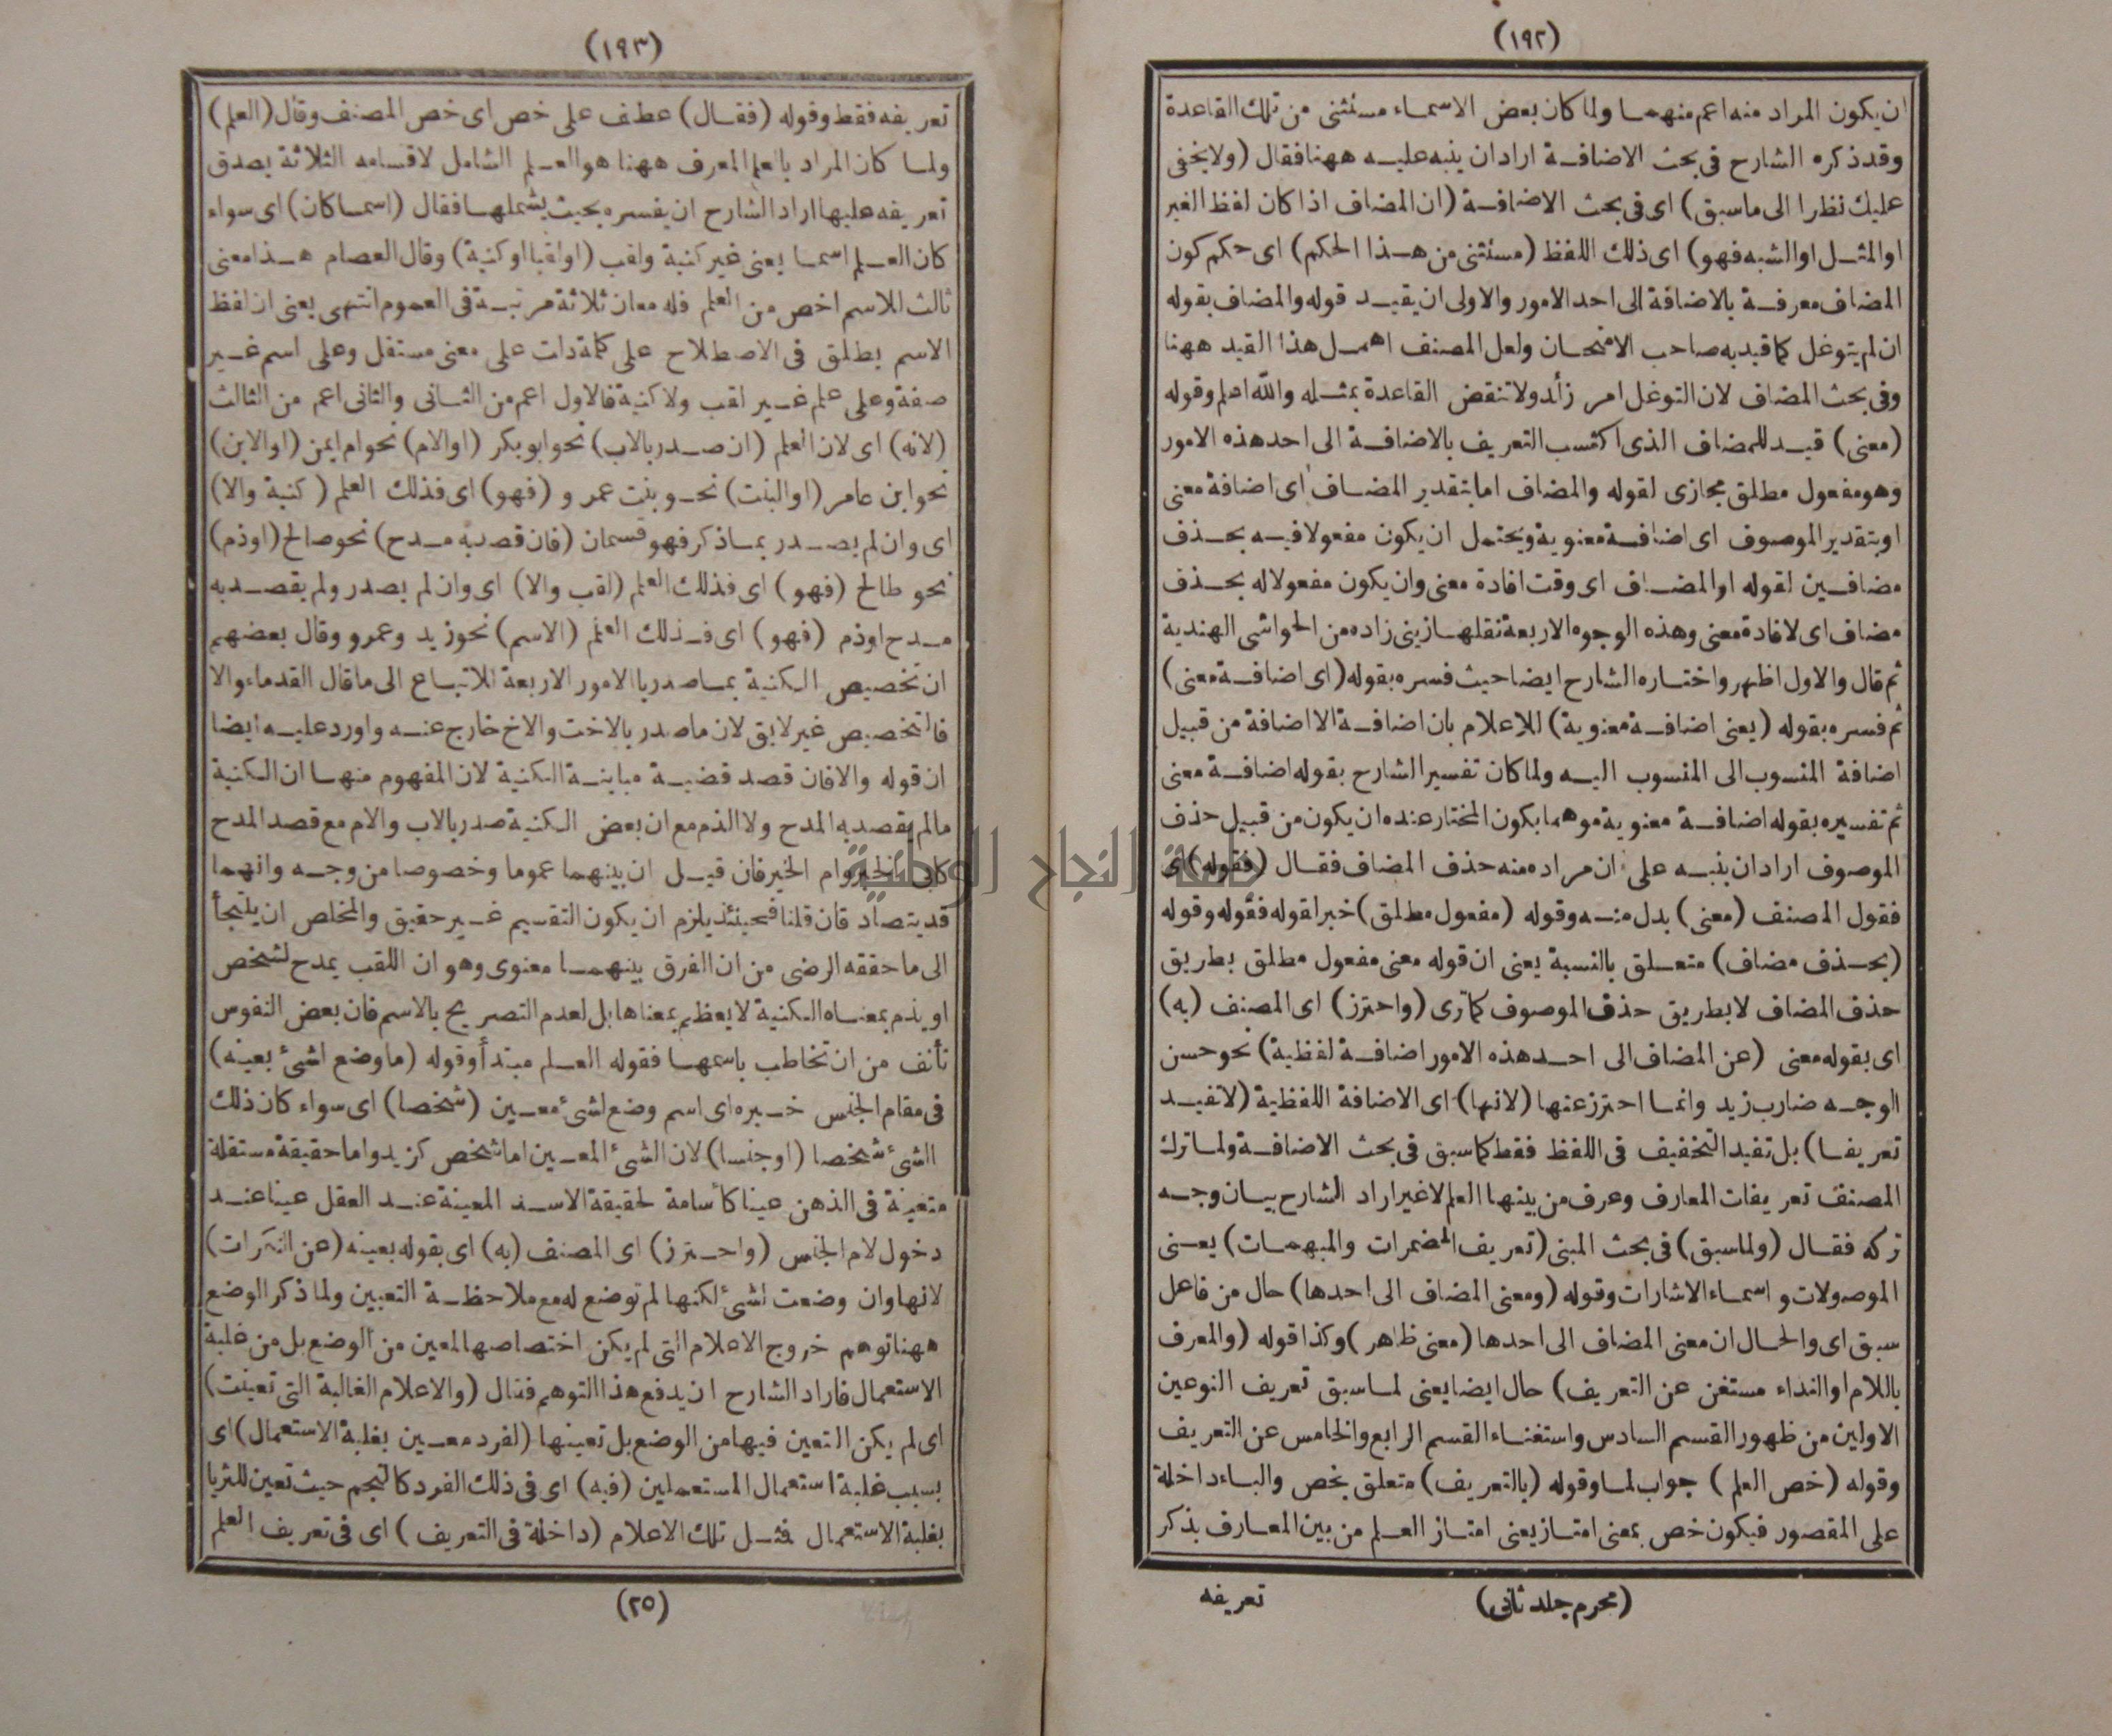 (١٩٢)
ان يكون المراد منه اعم منهما ولما كان بعض الاسماء مستثنى من تلك القاعدة
وقد ذكره الشارح فى بحث الاضافة اراد ان ينبه عليه ههنا فقال (ولا يخفى
عليك نظرا الى ما سبق) اى فى بحث الاضافة (ان المضاف اذا كان لفظ الغير
او المثل او الشبه فهو) اى ذلك اللفظ (مستثنى من هذا الحكم) اى حكم كون
المضاف معرفة بالاضافة الى احد الامور والاولى ان يقيد قوله والمضاف بقوله
ان لم يتوغل كما قيد به صاحب الامتحان ولعل المصنف اهمل هذا القيد ههنا
وفى بحث المضاف لان التوغل امر زائد ولا تنقض القاعدة بمثله والله اعلم وقوله
(معنى) قيد للمضاف الذى اكتسب التعريف بالاضافة الى احد هذه الامور
وهو مفعول مطلق مجازى لقوله والمضاف اما بتقدير المضاف اى اضافة معنى
او بتقدير الموصوف اى اضافة معنوية ويحتمل ان يكون مفعولا فيه بحذف
مضافين لقوله او المضاف اى وقت افادة معنى وان يكون مفعولا له بحذف
مضاف اى لافادة معنى وهذه الوجوه الاربعة نقلها زينى زاده من الحواشى الهندية
ثم قال والاول اظهر واختاره الشارح ايضا حيث فسره بقوله (اى اضافة معنى)
ثم فسره بقوله (يعنى اضافة معنوية) للاعلام بان اضافة الاضافة من قبيل
اضافة المنسوب الى المنسوب اليه ولما كان تفسير الشارح بقوله اضافة معنى
ثم تفسيره بقوله اضافة معنوية موهما بكون المختار عنده ان يكون من قبيل حذف
الموصوف اراد ان ينبه على ان مراده منه حذف المضاف فقال (فقوله) اى
فقول المصنف (معنى) بدل منه وقوله (مفعول مطلق) خبر لقوله فقوله وقوله
(بحذف مضاف) متعلق بالنسبة يعنى ان قوله معنى مفعول مطلق بطريق
حذف المضاف لا بطريق حذف الموصوف كما ترى (واحترز) اى المصنف (به)
اى بقوله معنى (عن المضاف الى احد هذه الامور اضافة لفظية) نحو حسن
الوجه ضارب زيد وانما احترز عنها (لانها) اى الاضافة اللفظية (لا تفيد
تعريفا) بل تفيد التخفيف فى اللفظ فقط كما سبق فى بحث الاضافة ولما ترك
المصنف تعريفات المعارف وعرف من بينها العلم لا غير اراد الشارح بيان وجه
تركه فقال (ولما سبق) فى بحث المبنى (تعريف المضمرات والمبهمات) يعنى
الموصولات واسماء الاشارات وقوله (ومعنى المضاف الى احدها) حال من فاعل
سبق اى والحال ان معنى المضاف الى احدها (معنى ظاهر) وكذا قوله (والمعرف
باللام او النداء مستغن عن التعريف) حال ايضا يعنى لما سبق تعريف النوعين
الاولين من ظهور القسم السادس واستغناء القسم الرابع والخامس عن التعريف
وقوله (خص العلم) جواب لما وقوله (بالتعريف) متعلق بخص والباء داخلة
على المقصور فيكون خص بمعنى امتاز يعنى امتاز العلم من بين المعارف بذكر
(محرم جلد ثانى)
تعريفه
(١٩٣)
تعريفه فقط وقوله (فقال) عطف على خص اى خص المصنف وقال (العلم)
ولما كان المراد بالعلم المعرف ههنا هو العلم الشامل لاقسامه الثلاثة يصدق
تعريفه عليها اراد الشارح ان يفسره بحيث يشملها فقال (اسما كان) اى سواء
كان العلم اسما يعنى غير كنية ولقب (او لقبا او كنية) وقال العصام هذا معنى
ثالث للاسم اخص من العلم فله معان ثلاثة مرتبة فى العموم انتهى يعنى ان لفظ
الاسم يطلق فى الاصطلاح على كلمة دات على معنى مستقل وعلى اسم غير
صفة وعلى علم غير لقب ولا كنية فالاول اعم من الثانى والثانى اعم من الثالث
(لانه) اى لان العلم (ان صدر بالاب) نحو ابو بكر (او الام) نحو ام ايمن (او الابن)
نحو ابن عامر (او البنت) نحو بنت عمر و (فهو) اى فذلك العلم (كنية والا)
اى وان لم يصدر بما ذكر فهو قسمان (فان قصد به مدح) نحو صالح (او ذم)
نحو طالح (فهو) اى فذلك العلم (لقب والا) اى وان لم يصدر ولم يقصد به
مدح او ذم (فهو) اى فذلك العلم (الاسم) نحو زيد وعمرو وقال بعضهم
ان تخصيص الكنية بما صدر با الامور الاربعة للاتباع الى ما قال القدماء والا
فالتخصيص غير لايق لان ما صدر بالاخت والاخ خارج عنه واورد عليه ايضا
ان قوله والا فان قصد قضية مباينة الكنية لان المفهوم منها ان الكنية
مالم يقصد به المدح ولا الذم مع ان بعض الكنية صدر بالاب والام مع قصد المدح
كابى الخير وام الخير فان قيل ان بينهما عموما وخصوصا من وجه وانهما
قد يتصاد قان قلنا فحينئذ يلزم ان يكون التقسيم غير حقيق والمخلص ان يلتجأ
الى ما حققه الرضى من ان الفرق بينهما معنوى وهو ان اللقب يمدح لشخص
او يذم بمعناه الكنية لا يعظم بمعناها بل لعدم التصريح بالاسم فان بعض النفوس
تأنف من ان تخاطب باسمها فقوله العلم مبتدأ وقوله (ما وضع لشئ بعينه)
فى مقام الجنس خبره اى اسم وضع لشئ معين (شخصا) اى سواء كان ذلك
الشئ شخصا (او جنسا) لان الشئ المعين اما شخص كزيد واما حقيقة مستقلة
متعينة فى الذهن عينا كأسامة لحقيقة الاسد المعينة عند العقل عينا عند
دخول لام الجنس (واحترز) اى المصنف (به) اى بقوله بعينه (عن النكرات)
لانها وان وضعت لشئ لكنها لم توضع له مع ملاحظة التعيين ولما ذكر الوضع
ههنا توهم خروج الاعلام التى لم يكن اختصاصها لمعين من الوضع بل من غلبة
الاستعمال فاراد الشارح ان يدفع هذا التوهم فقال (والاعلام الغالبة التى تعينت)
اى لم يكن التعين فيها من الوضع بل تعينها (لفرد معين بغلبة الاستعمال) اى
بسبب غلبة استعمال المستعملين (فيه) اى فى ذلك الفرد كالنجم حيث تعين للثريا
بغلبة الاستعمال فمثل تلك الاعلام (داخلة فى التعريف) اى فى تعريف العلم
(٢٥)
جامعة النجاح الوطنية